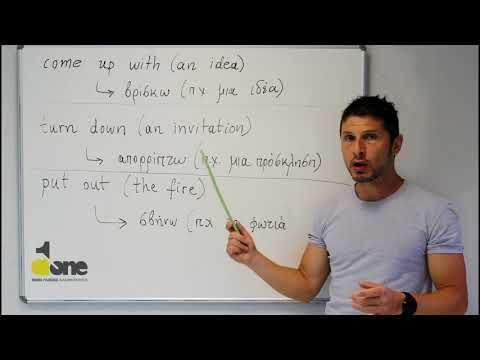 come up with (an idea)
βρίσκω (πχ μια ιδέα)
turn down (an invitation)
απορρίπτω (πχ. μια πρόσκληση)
put out (the fire)
σβήνω (πχ φωτιά
done